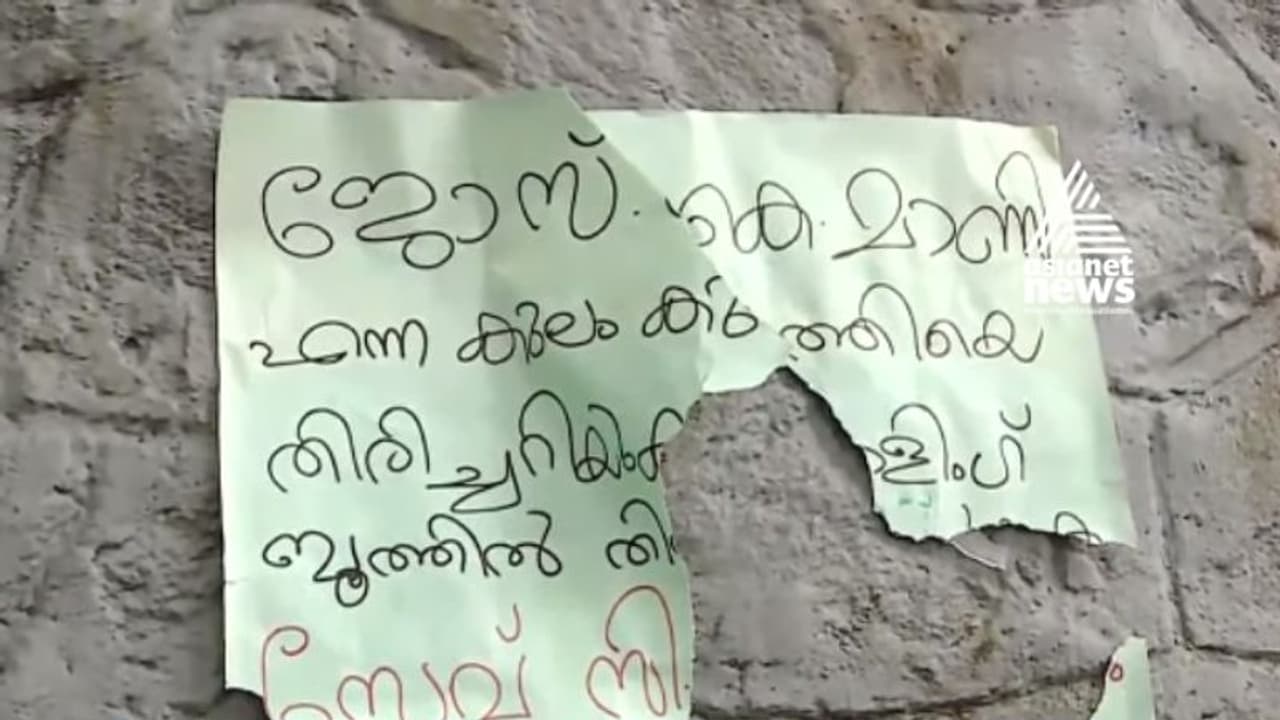 ജോസ്. കെ. മാണി
എന്ന കുലം കുത്തിയെ
തിരിച്ചറിയുക പോളിംഗ്
ബൂത്തിൽ
സേവ് സി
asianet
news